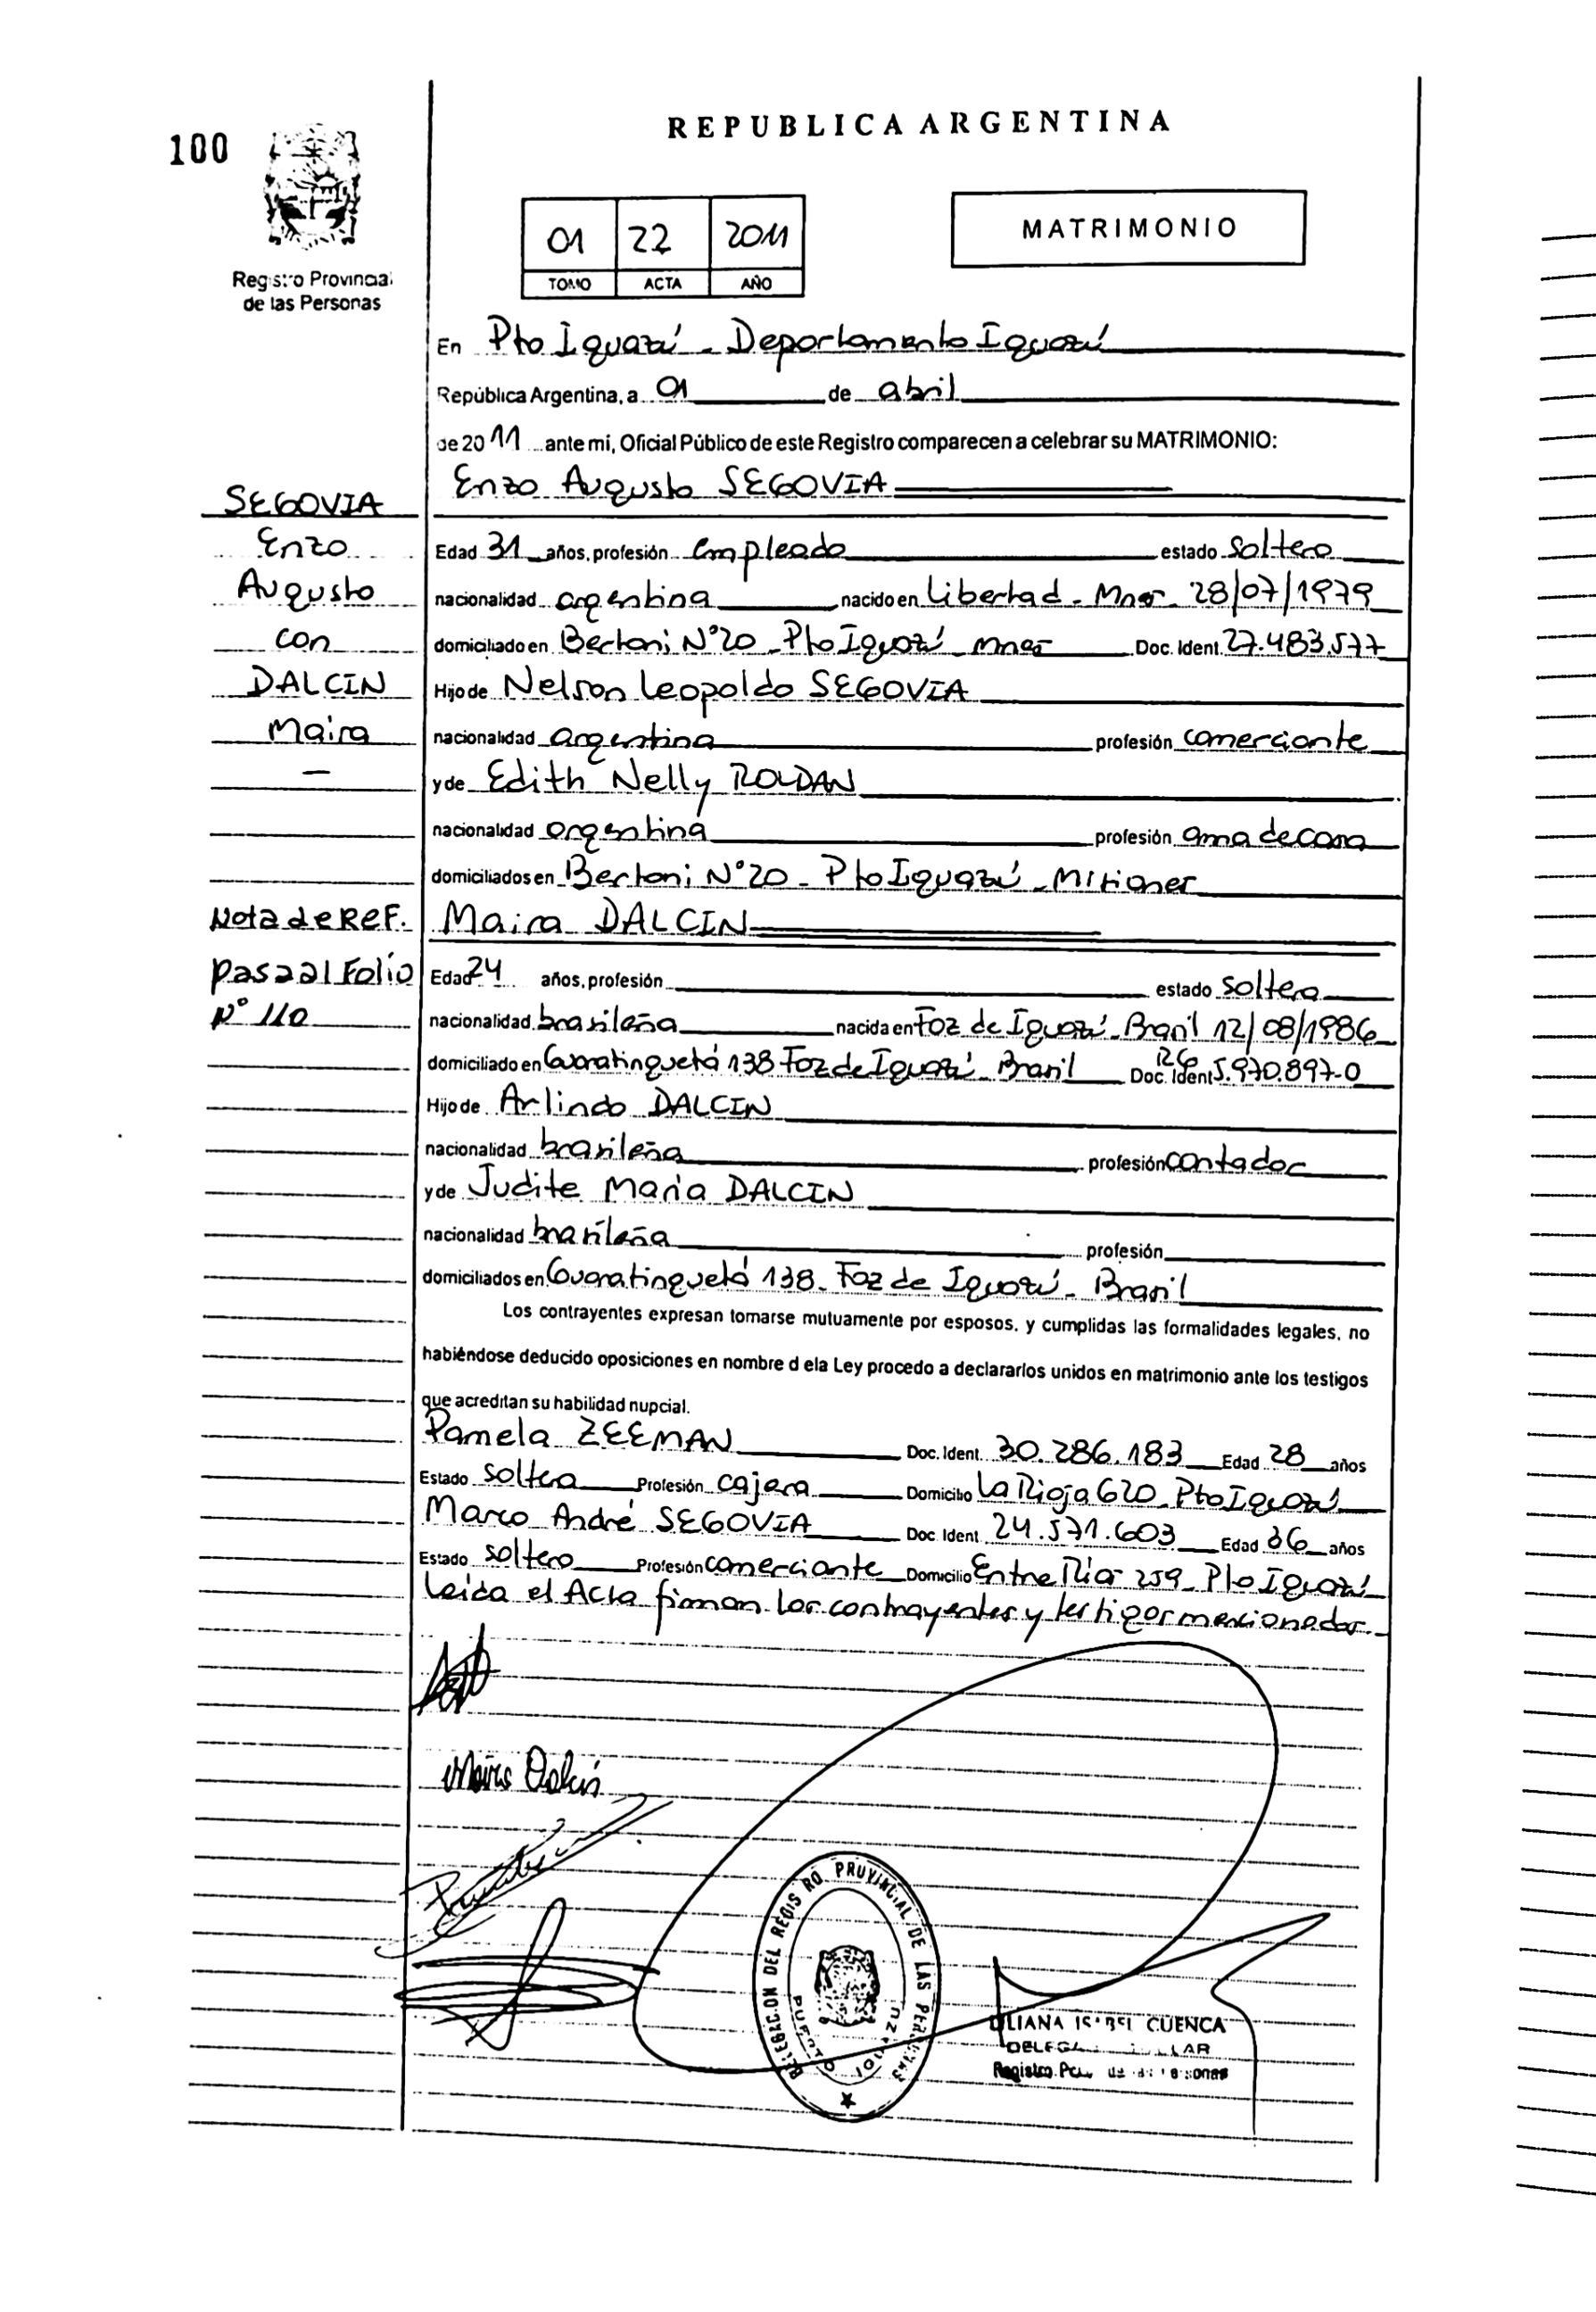 REPUBLICA ARGENTINA
100
01 22 2011
TOMO ACTA AÑO
MATRIMONIO
Registro Provincial
de las Personas
En Pto Iguazú - Departamento Iguazú
República Argentina, a 01 de abril
de 2011 ante mi, Oficial Público de este Registro comparecen a celebrar su MATRIMONIO:
Enzo Augusto SEGOVIA
SEGOVIA
Enzo
Augusto
con
DALCIN
Maira
Edad 31 años, profesión empleado estado soltero
nacionalidad argentina nacido en Libertad - Mnes - 28/07/1979
domiciliado en Bertoni N°20 - Pto Iguazú - mnes Doc. Ident. 27.483.577
Hijo de Nelson Leopoldo SEGOVIA
nacionalidad argentina profesión comerciante
y de Edith Nelly ROLDAN
nacionalidad argentina profesión ama de casa
domiciliados en Bertoni N°20 - Pto Iguazú - Misiones
Nota de REF.
pasa al Folio
N° 110
Maira DALCIN
Edad 24 años, profesión estado soltera
nacionalidad brasileña nacida en Foz de Iguazú - Brasil 12/08/1986
domiciliado en Guaratinguetá 138 Foz de Iguazú - Brasil Doc. Ident RG 5.970.897-0
Hijo de Arlindo DALCIN
nacionalidad brasileña profesión contador
y de Judite Maria DALCIN
nacionalidad brasileña profesión
domiciliados en Guaratinguetá 138 - Foz de Iguazú - Brasil
Los contrayentes expresan tomarse mutuamente por esposos, y cumplidas las formalidades legales, no
habiéndose deducido oposiciones en nombre d ela Ley procedo a declararlos unidos en matrimonio ante los testigos
que acreditan su habilidad nupcial.
Pamela ZEEMAN Doc. Ident. 30.286.183 Edad 28 años
Estado soltera Profesión cajera Domicilio La Rioja 620 - Pto Iguazú
Marco André SEGOVIA Doc. Ident. 24.571.603 Edad 36 años
Estado soltero Profesión comerciante Domicilio Entre Ríos 259 - Pto Iguazú
Leída el Acta firman los contrayentes y testigos mencionados.
Maira Dalcin
DELEGACION DEL REGISTRO PROVINCIAL DE LAS PERSONAS
PUERTO IGUAZU
ISABEL CUENCA
Registro